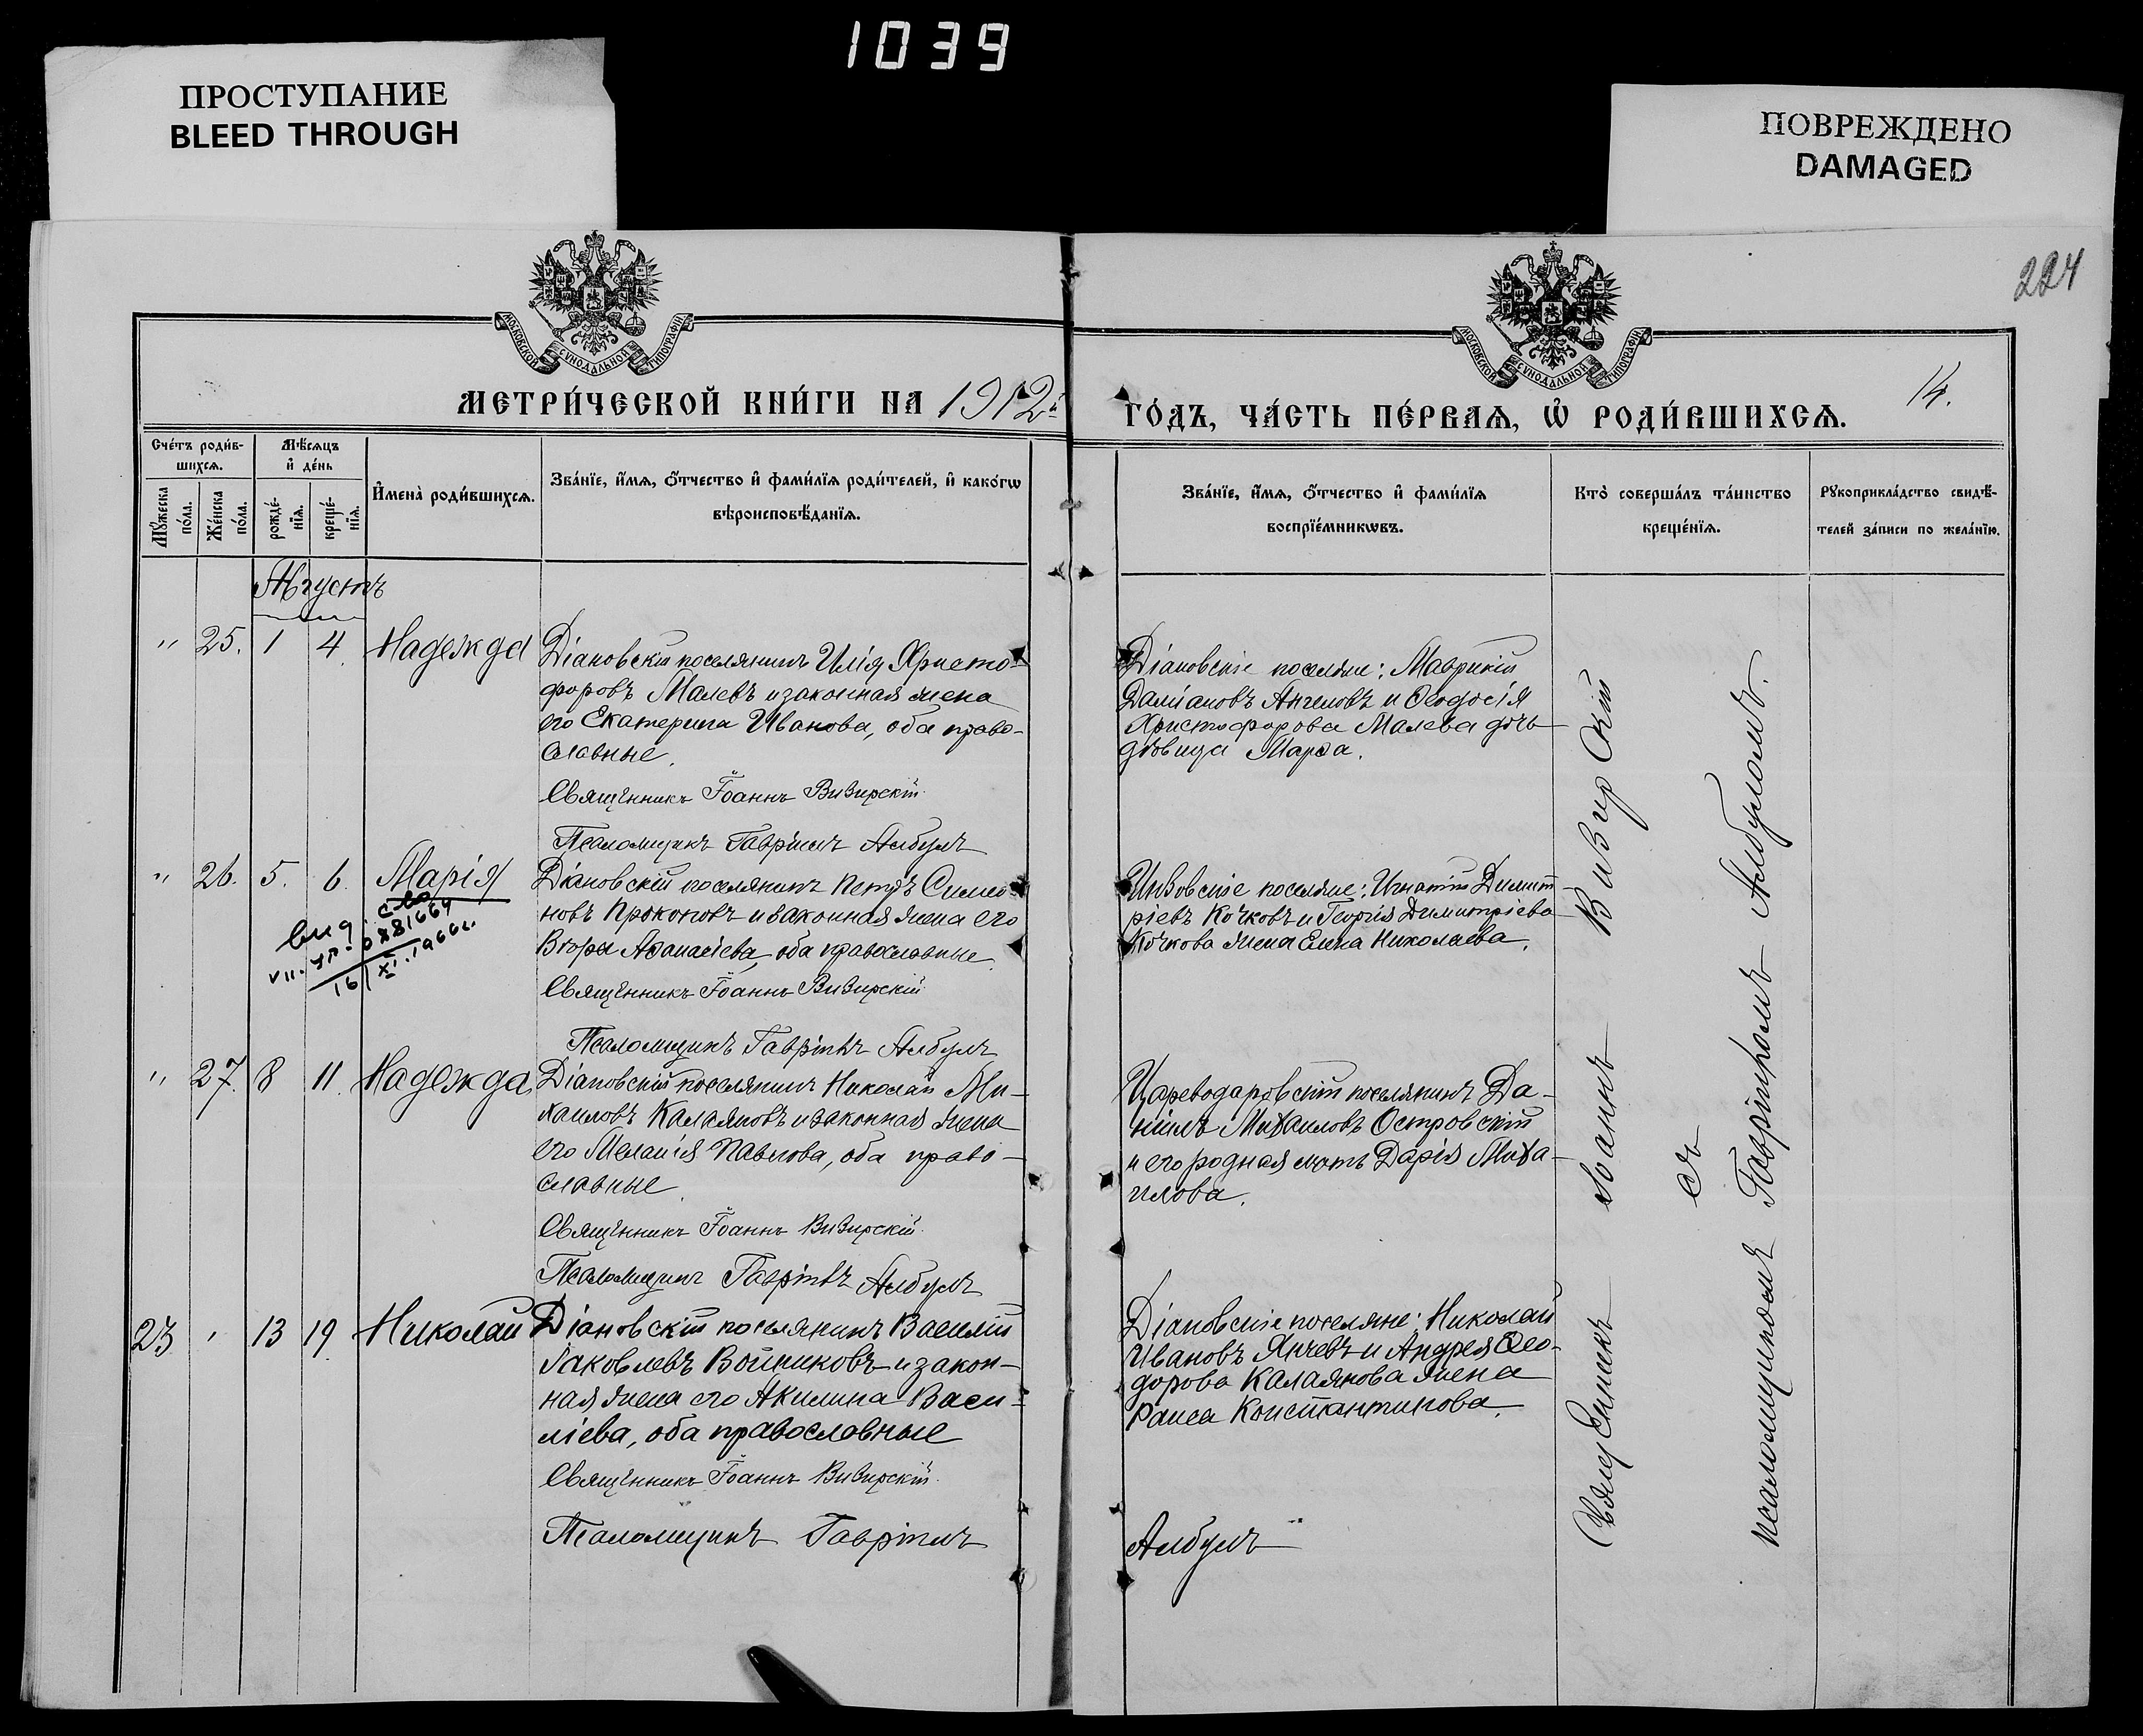 1039
ПРОСТУПАНИЕ
BLEED THROUGH
ПОВРЕЖДЕНО
DAMAGED
224
МОСКОВСКОЙ СѴНОДАЛЬНОЙ ТИПОГРАФІИ
МОСКОВСКОЙ СѴНОДАЛЬНОЙ ТИПОГРАФІИ
МЕТРИ́ЧЕСКОЙ КНИ́ГИ НА 1912й
ГО́ДЪ, ЧА́СТЬ ПЕ́РВАѦ, Ѡ҆ РОДИ́ВШИХСѦ.
14.
Сче́тъ роди́в-
шихсѧ.
Мѣ́сѧцъ
и҆ де́нь
Мꙋ́жеска
по́ла.
Же́нска
по́ла.
рожде́-
нїѧ.
креще́-
нїѧ.
И҆мена̀ роди́вшихсѧ.
Зва́нїе, и҆́мѧ, ѻ҆́тчество и҆ фами́лїѧ роди́телей, и҆ како́гѡ
вѣроисповѣ́данїѧ.
Зва́нїе, и҆́мѧ, ѻ҆́тчество и҆ фами́лїѧ
воспрїе́мникѡвъ.
Кто̀ соверша́лъ та́инство
креще́нїѧ.
Рꙋкоприкла́дство свидѣ́-
телей за́писи по жела́нїю.
Августъ
" 25. 1 4 Надежда
Діановскій поселянинъ Илія Христо-
форовъ Малевъ и законная жена
его Екатерина Иванова, оба право-
славные.
Священникъ Іоаннъ Визирскій
Псаломщикъ Гавріилъ Албулъ
Діановскіе поселяне: Маврикій
Даміановъ Ангеловъ и Ѳеодосія
Христофорова Малева дочь
дѣвица Марѳа.
" 26. 5. 6. Марія
вид. св
VII-УР. 0881664
16/XI.1966г.
Діановскій поселянинъ Петръ Симео-
новъ Проконовъ и законная жена его
Вѣра Аѳанасіева, оба православные.
Священникъ Іоаннъ Визирскій
Псаломщикъ Гавріилъ Албулъ
Инзовскіе поселяне: Игнатій Димит-
ріевъ Кочковъ и Георгія Димитріева
Кочкова жена Елена Николаева.
" 27. 8 11. Надежда
Діановскій поселянинъ Николай Ми-
хаиловъ Калаяновъ и законная жена
его Меланія Павлова, оба право-
славные.
Священникъ Іоаннъ Визирскій
Псаломщикъ Гавріилъ Албулъ
Цареводаровскій поселянинъ Да-
ніилъ Михаиловъ Островскій
и его родная мать Дарія Миха-
илова.
23 " 13 19. Николай
Діановскій поселянинъ Василій
Іаковлевъ Войниковъ и закон-
ная жена его Акилина Васи-
ліева, оба православные
Священникъ Іоаннъ Визирскій
Псаломщикъ Гавріилъ
Діановскіе поселяне: Николай
Ивановъ Янчевъ и Андрея Ѳео-
дорова Калаянова жена
Раиса Константинова.
Албулъ
Священникъ Іоаннъ Визирскій
съ
псаломщикомъ Гавріиломъ Албуломъ.